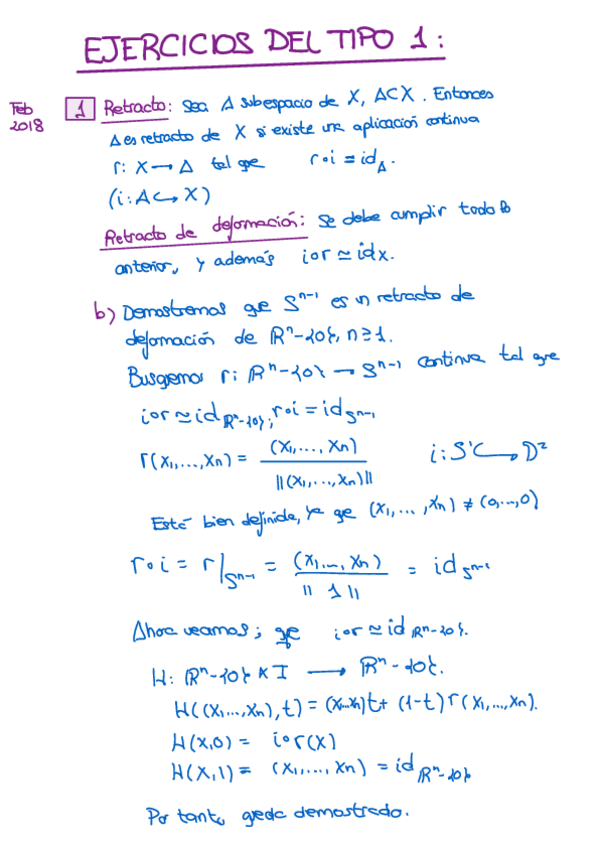 EJERCICIOS DEL TIPO 1:
Feb 2018
1 Retracto: Sea A subespacio de X, A⊂X. Entonces
A es retracto de X si existe una aplicación continua
r: X → A tal que r∘i = id_A.
(i: A ↪ X)
Retracto de deformación: Se debe cumplir todo lo
anterior, y además i∘r ≃ id_X.
b) Demostremos que S^{n-1} es un retracto de
deformación de ℝ^n-{0}, n≥1.
Busquemos r: ℝ^n-{0} → S^{n-1} continua tal que
i∘r ≃ id_{ℝ^n-{0}}; r∘i = id_{S^{n-1}}
r(x₁,...,xₙ) = (x₁,...,xₙ) / ||(x₁,...,xₙ)|| i: S¹ ↪ D²
Está bien definida, ya que (x₁,...,xₙ) ≠ (0,...,0)
r∘i = r|_{S^{n-1}} = (x₁,...,xₙ) / ||1|| = id_{S^{n-1}}
Ahora veamos; que i∘r ≃ id_{ℝ^n-{0}}.
H: ℝ^n-{0} × I → ℝ^n-{0}.
H((x₁,...,xₙ),t) = (x₁...xₙ)t + (1-t) r(x₁,...,xₙ).
H(x,0) = i∘r(x)
H(x,1) = (x₁,...,xₙ) = id_{ℝ^n-{0}}
Por tanto, queda demostrado.